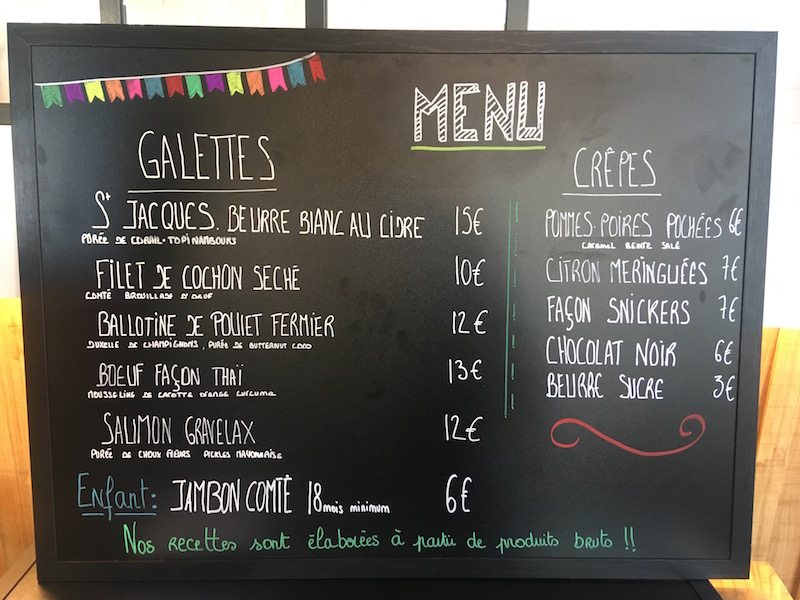 MENU
GALETTES
St JACQUES. BEURRE BLANC AU CIDRE 15€
PURÉE DE CORAIL-TOPINAMBOURS
FILET DE COCHON SECHÉ 10€
COMTÉ BROUILLADE D'OEUF
BALLOTINE DE POULET FERMIER 12€
DUXELLE DE CHAMPIGNONS, PURÉE DE BUTTERNUT COCO
BOEUF FAÇON THAÏ 13€
MOUSSELINE DE CAROTTE ORANGE CURCUMA
SAUMON GRAVELAX 12€
PURÉE DE CHOUX FLEURS PICKLES MAYONNAISE
Enfant: JAMBON COMTÉ 18 mois minimum 6€
CRÊPES
POMMES-POIRES POCHÉES 6€
CARAMEL BEURRE SALÉ
CITRON MERINGUÉES 7€
FAÇON SNICKERS 7€
CHOCOLAT NOIR 6€
BEURRE SUCRE 3€
Nos recettes sont élaborées à partir de produits bruts !!